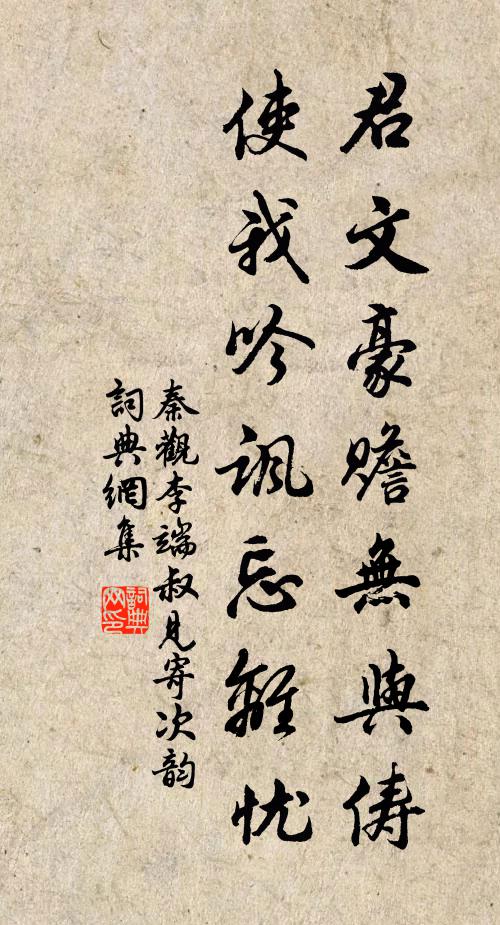 君文豪贍無與儔
使我吟諷忘離忧
秦觀李端叔見寄次韵
詞典網集
詞典网印